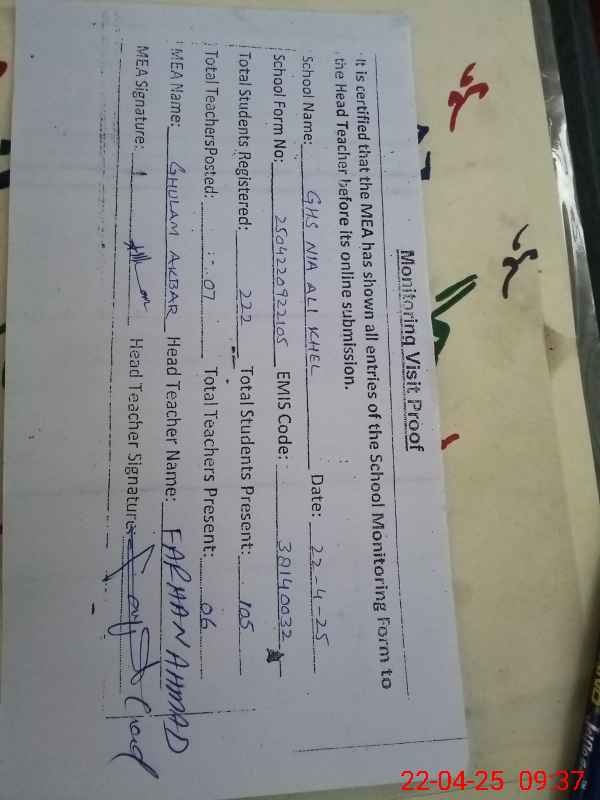 Monitoring Visit Proof
It is certified that the MEA has shown all entries of the School Monitoring Form to
the Head Teacher before its online submission.
School Name: GHS NIA ALI KHEL Date: 22-4-25
School Form No: 2504220922105 EMIS Code: 38140032
Total Students Registered: 222 Total Students Present: 105
Total TeachersPosted: 07 Total Teachers Present: 06
MEA Name: GHULAM AKBAR Head Teacher Name: FARHAN AHMAD
MEA Signature: Head Teacher Signature:
22-04-25 09:37